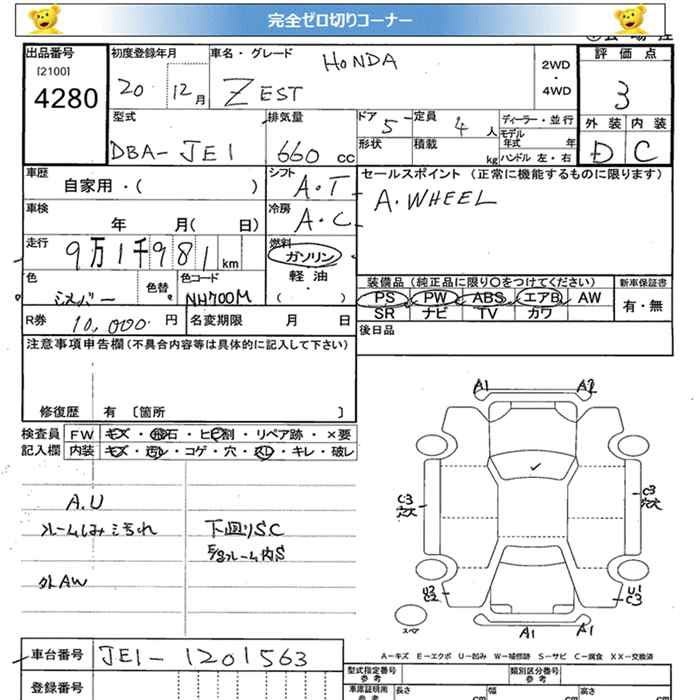 完全ゼロ切りコーナー
出品番号
[2100]
4280
初度登録年月
20 12月
車名・グレード
HONDA
ZEST
2WD
・
4WD
評価点
3
外装 内装
D C
型式
DBA-JE1
排気量
660 cc
ドア 5
定員 4 人
形状
積載 kg
ディーラー・並行
モデル年式 年
ハンドル 左・右
車歴
自家用・( )
シフト
A・T
セールスポイント (正常に機能するものに限ります)
A.WHEEL
車検
年 月( 日)
冷房
A・C
走行
9万1千981 km
燃料
ガソリン
軽油
・
( )
色
シルバー
色替
色コード
NH700M
装備品(純正品に限り〇をつけてください)
PS PW ABS エアB AW
SR ナビ TV カワ
新車保証書
有・無
R券 10,000 円
名変期限 月 日
後日品
注意事項申告欄(不具合内容等は具体的に記入して下さい)
修復歴 有〔箇所 〕
検査員
記入欄
FW キズ・飛石・ヒビ割・リペア跡・×要
内装 キズ・汚レ・コゲ・穴・スレ・キレ・破レ
A.U
下廻りSC
フレーム内S
外AW
A1 A2
C3
穴大
C3
穴大
U3
C2
U1
C3
スペア
A1 A1
A-キズ E-エクボ U-凹み W-補修跡 S-サビ C-腐食 XX-交換済
車台番号 JE1-1201563
登録番号
型式指定番号
参考
類別区分番号
参考
車庫証明用
参考
長さ cm
幅 cm
高さ cm